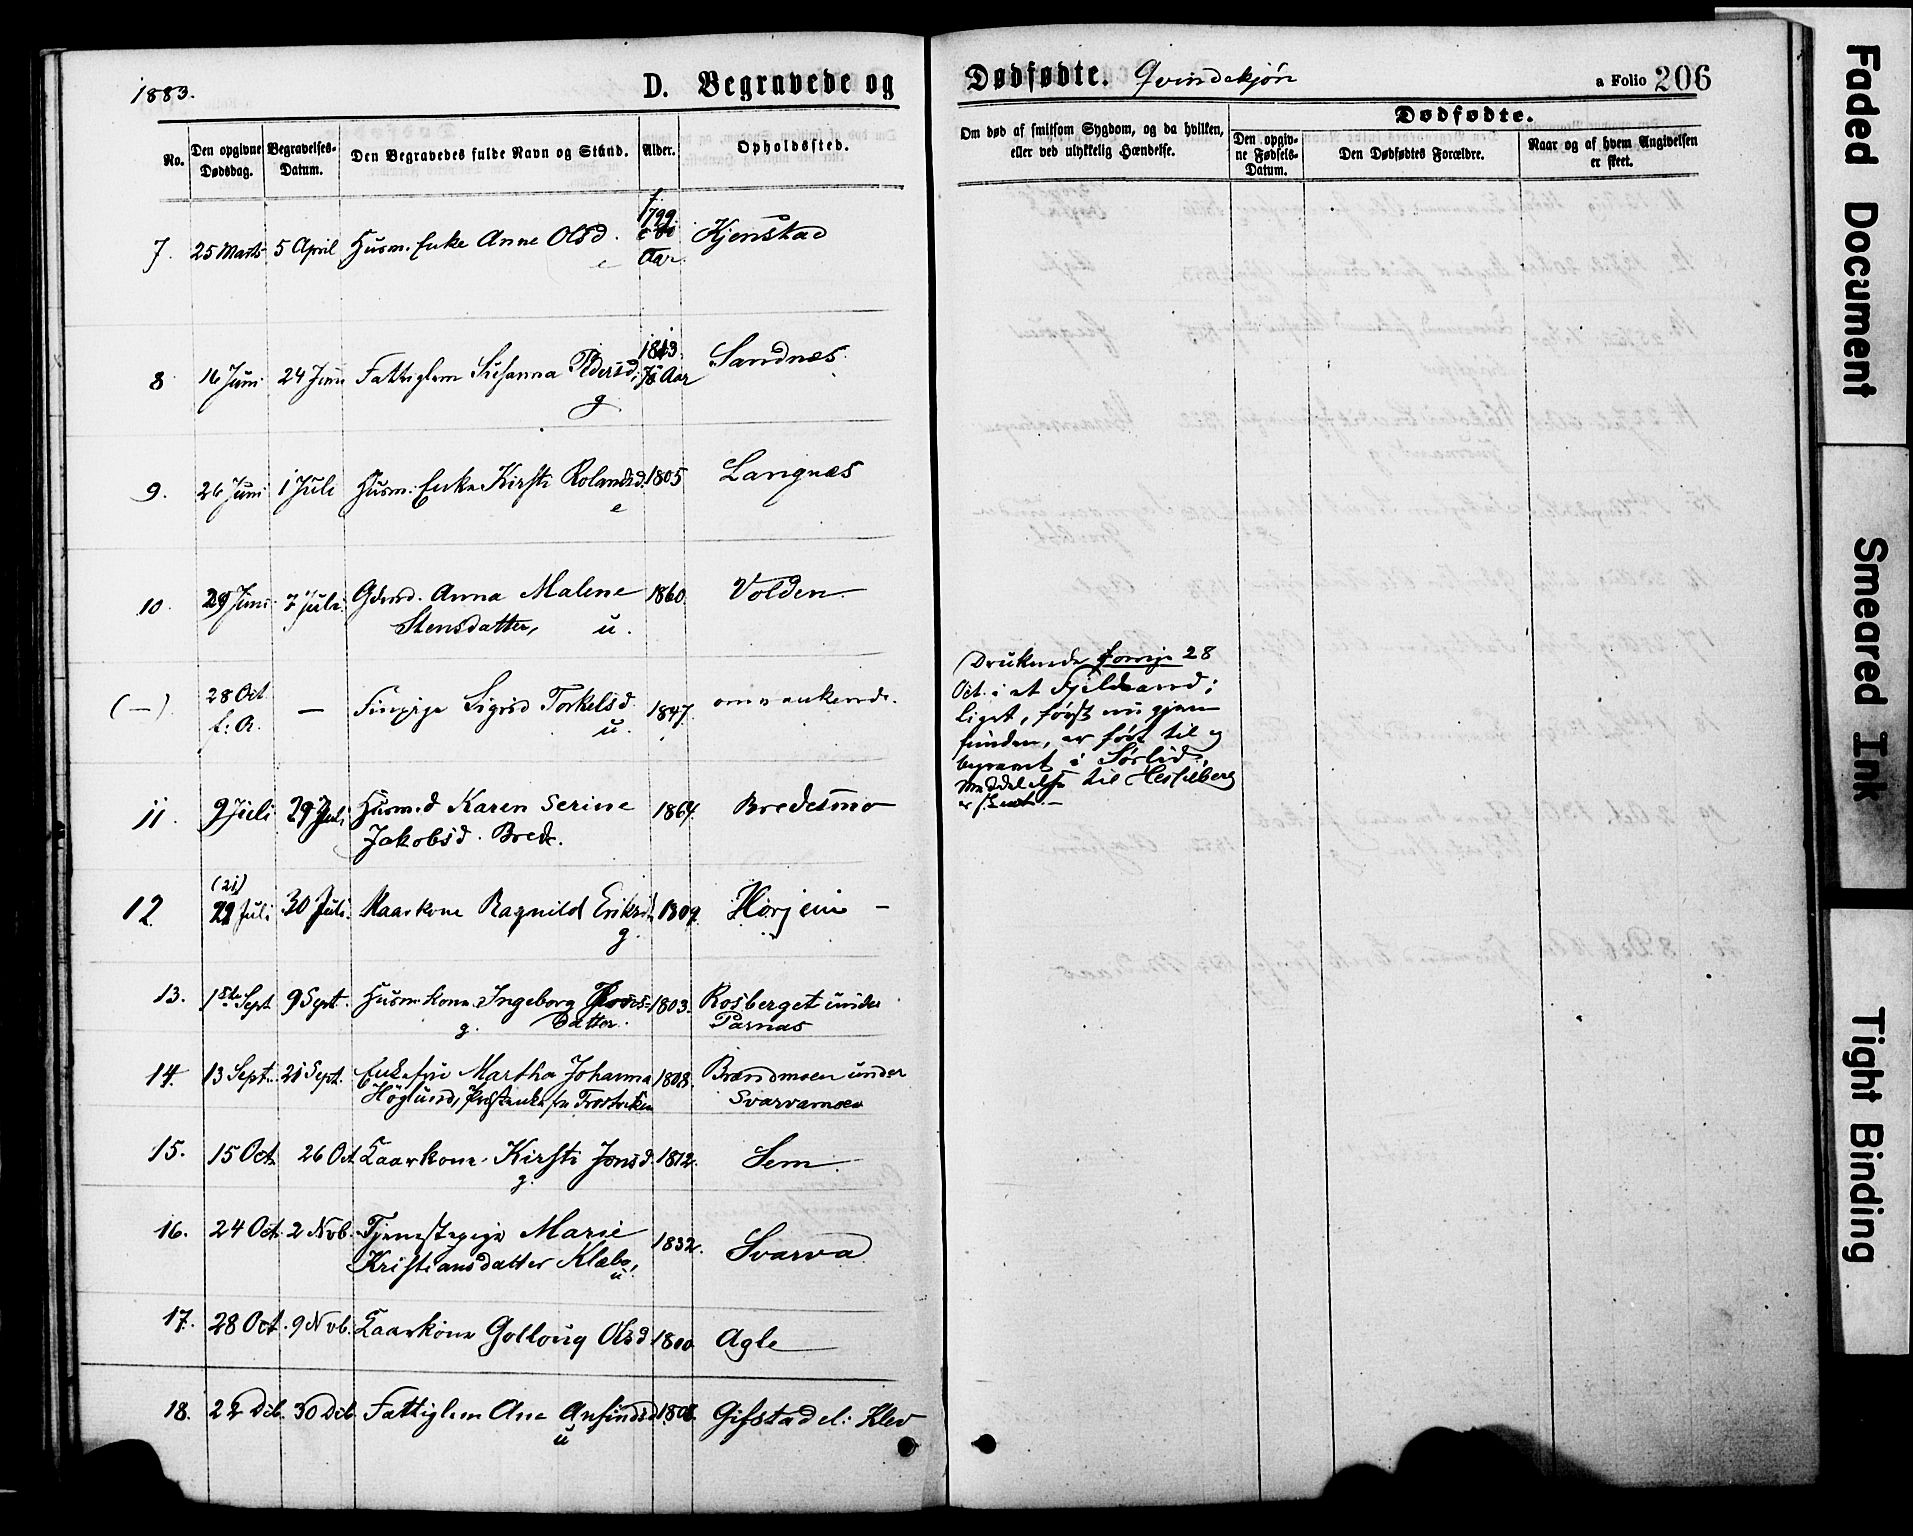 1883.
D. Begravede og
Dødfødte. Qvindekjøn
a Folio 206
No.
Den opgivne Dødsdag.
Begravelses-Datum.
Den Begravedes fulde Navn og Stand.
Alder.
Opholdssted.
Om død af smitsom Sygdom, og da hvilken,
eller ved ulykkelig Hændelse.
Dødfødte.
Den opgivne Fødsels-Datum.
Den Dødfødtes Forældre.
Naar og af hvem Angivelsen er skeet.
7. 25 Marts 5 April Husm. Enke Anne Olsd. 1799 Aar Kjenstad
e
8 16 Juni 24 Juni Fattiglem Susanna Pedersd. 1813 Aar Sandnæs
g
9. 26 Juni 1 Juli Husm. Enke Kirsti Rolandsd. 1805 Langnæs
e
10. 29 Juni 7 Juli Gdmd. Anna Malene 1860 Volden
Stensdatter, u.
(—) 28 Oct f: A. — Sigrid Torkelsd. 1847. omvankende.
u.
Druknede forrige 28
Oct. i et Fjeldvand;
Liget, først nu gjen
funden, er ført til og
begravet i Sørlid,
Meddelelse til
11. 9 Juli 29 Juli Husm.d Karen Serine 1864 Bredesmo
Jakobsd. Brede.
(21)
12. 22 Juli 30 Juli Kaarkone Ragnild Eriksd. 1809 Horjem —
g.
13. 1ste Sept 9 Sept. Husm. kone Ingeborg 1803. Rosberget under
g. datter. Parnas
14. 13 Sept. 21 Sept. Enkefru Martha Johanna 1808. Brændmoen under
Höglund, fra Trostviken Svarvamoen
15. 15 Oct. 26 Oct Kaarkone Kirsti Jonsd. 1812. Sem
g.
16. 24 Oct. 2 Novb. Tjenestepige Marie 1832. Svarva
Kristiansdatter Klæbo,
u
17. 28 Oct. 9 Novb. Kaarkone Golloug Olsd 1800 Agle
18. 22 Deb. 30 Deb Fattiglem Ane Anfindsd. 1808. Gifstad el: Klev
u
Faded Document
Smeared Ink
Tight Binding